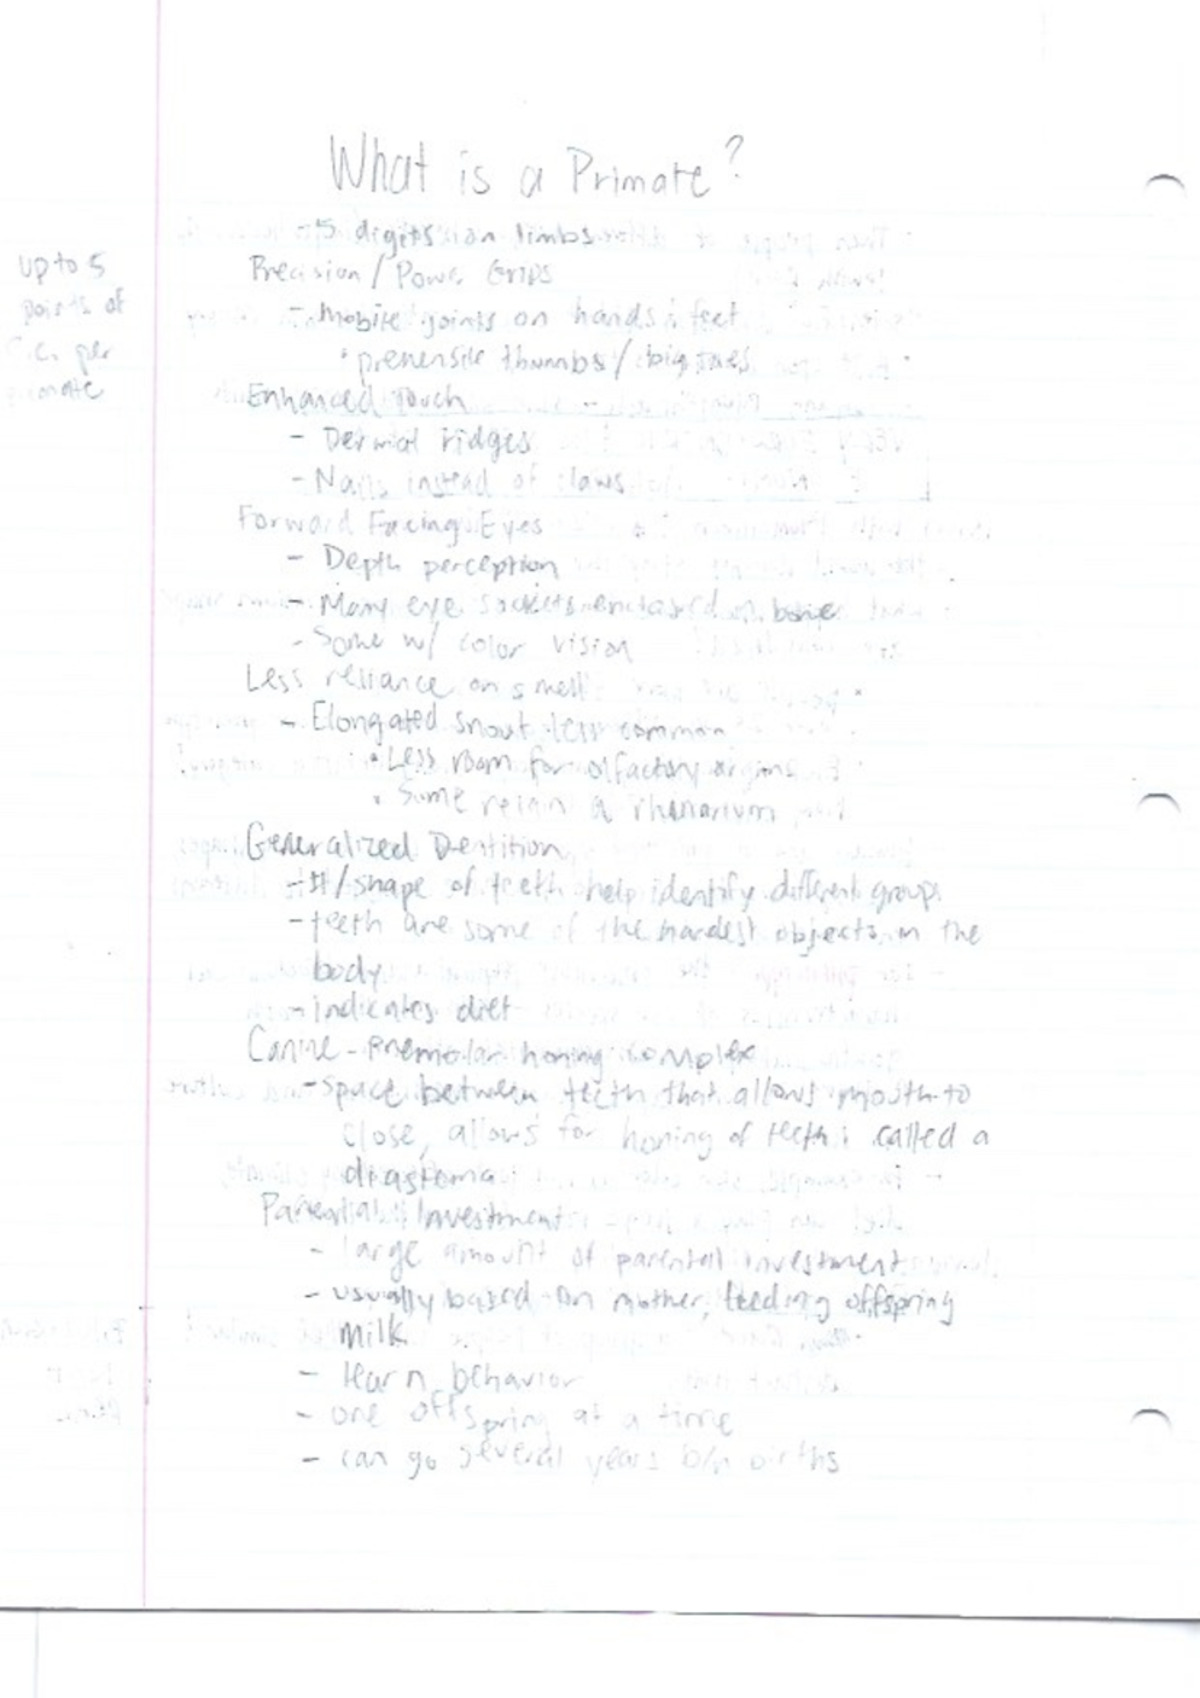 What is a Primate?
- 5 digits on limbs
up to 5
points of
e.c. per
primate
Precision / Power Grips
- Mobile joints on hands & feet
• prehensile thumbs / big toes
Enhanced Touch
- Dermal ridges
- Nails instead of claws
Forward Facing Eyes
- Depth perception
- Many eye sockets enclosed in bone
- Some w/ color vision
Less reliance on smell
- Elongated snout less common
• Less room for olfactory organs
• Some retain a rhinarium
Generalized Dentition
- #/shape of teeth help identify different groups
- teeth are some of the hardest objects in the
body
- indicates diet
Canine - Premolar honing complex
- space between teeth that allows mouth to
close, allows for honing of teeth; called a
diastema
Parental Investment
- large amount of parental investment
- usually based on mother, feeding offspring
milk
- learn behavior
- one offspring at a time
- can go several years b/n births